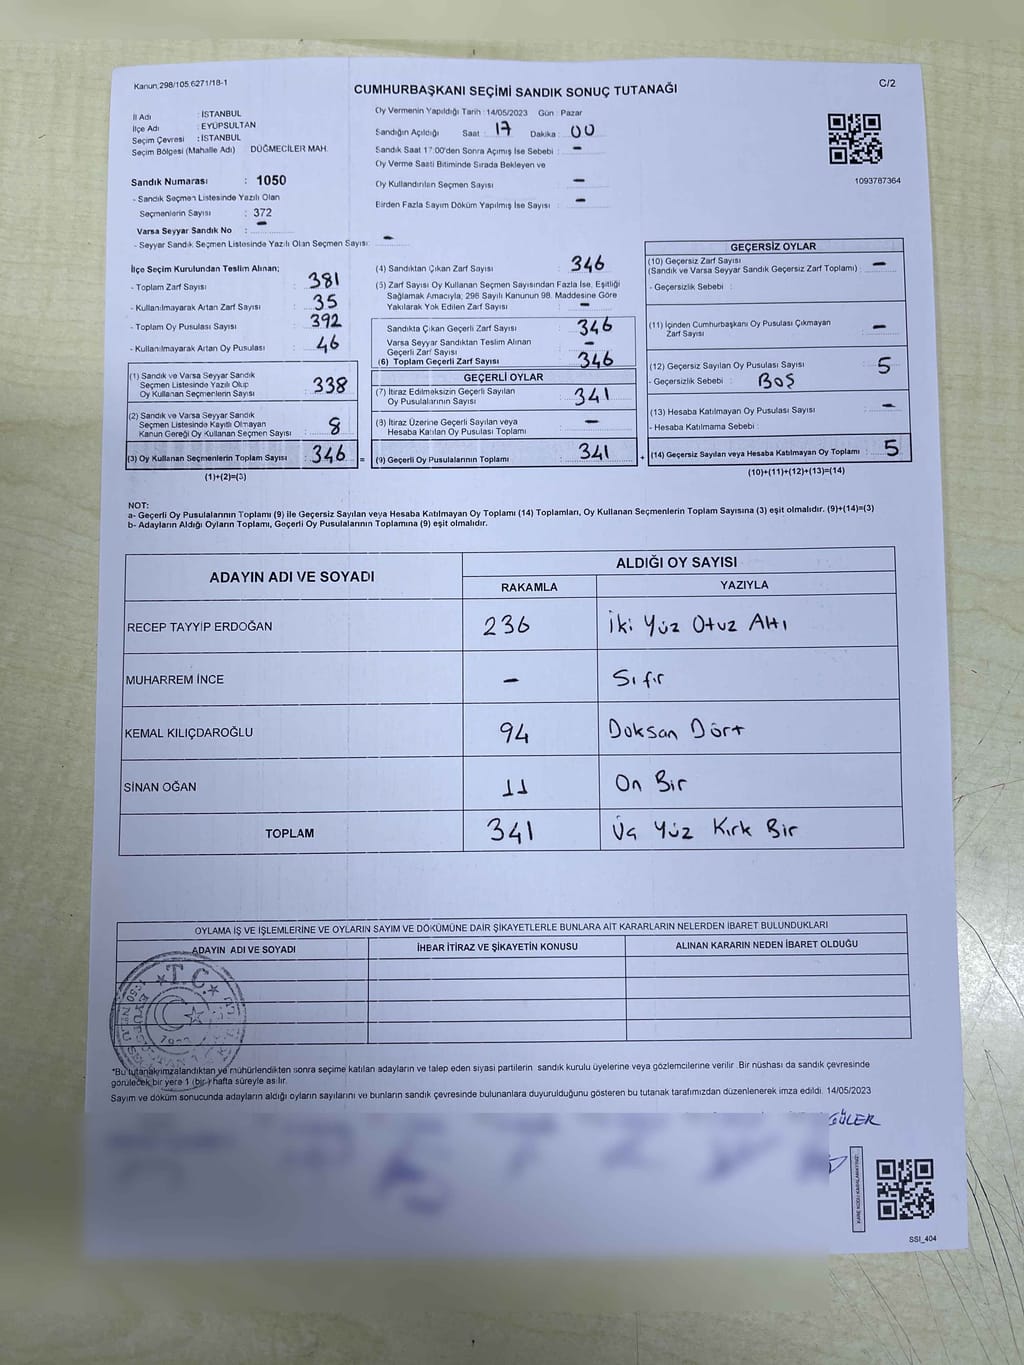 Kanun;298/105;6271/18-1
CUMHURBAŞKANI SEÇİMİ SANDIK SONUÇ TUTANAĞI
C/2
İl Adı : İSTANBUL
İlçe Adı : EYÜPSULTAN
Seçim Çevresi : İSTANBUL
Seçim Bölgesi (Mahalle Adı) DÜĞMECİLER MAH.
Sandık Numarası : 1050
- Sandık Seçmen Listesinde Yazılı Olan
Seçmenlerin Sayısı : 372
Varsa Seyyar Sandık No : -
- Seyyar Sandık Seçmen Listesinde Yazılı Olan Seçmen Sayısı: -
Oy Vermenin Yapıldığı Tarih : 14/05/2023 Gün : Pazar
Sandığın Açıldığı Saat : 17 Dakika : 00
Sandık Saat 17:00'den Sonra Açımış İse Sebebi : -
Oy Verme Saati Bitiminde Sırada Bekleyen ve
Oy Kullandırılan Seçmen Sayısı -
Birden Fazla Sayım Döküm Yapılmış İse Sayısı : -
1093787364
İlçe Seçim Kurulundan Teslim Alınan;
- Toplam Zarf Sayısı : 381
- Kullanılmayarak Artan Zarf Sayısı : 35
- Toplam Oy Pusulası Sayısı : 392
- Kullanılmayarak Artan Oy Pusulası : 46
(1) Sandık ve Varsa Seyyar Sandık
Seçmen Listesinde Yazılı Olup
Oy Kullanan Seçmenlerin Sayısı : 338
(2) Sandık ve Varsa Seyyar Sandık
Seçmen Listesinde Kayıtlı Olmayan
Kanun Gereği Oy Kullanan Seçmen Sayısı : 8
(3) Oy Kullanan Seçmenlerin Toplam Sayısı : 346 =
(1)+(2)=(3)
(4) Sandıktan Çıkan Zarf Sayısı : 346
(5) Zarf Sayısı Oy Kullanan Seçmen Sayısından Fazla İse, Eşitliği
Sağlamak Amacıyla; 298 Sayılı Kanunun 98. Maddesine Göre
Yakılarak Yok Edilen Zarf Sayısı : -
Sandıkta Çıkan Geçerli Zarf Sayısı : 346
Varsa Seyyar Sandıktan Teslim Alınan
Geçerli Zarf Sayısı : -
(6) Toplam Geçerli Zarf Sayısı : 346
GEÇERLİ OYLAR
(7) İtiraz Edilmeksizin Geçerli Sayılan
Oy Pusulalarının Sayısı : 341
(8) İtiraz Üzerine Geçerli Sayılan veya
Hesaba Katılan Oy Pusulası Toplamı : -
(9) Geçerli Oy Pusulalarının Toplamı : 341 +
GEÇERSİZ OYLAR
(10) Geçersiz Zarf Sayısı
(Sandık ve Varsa Seyyar Sandık Geçersiz Zarf Toplamı) : -
- Geçersizlik Sebebi :
(11) İçinden Cumhurbaşkanı Oy Pusulası Çıkmayan
Zarf Sayısı : -
(12) Geçersiz Sayılan Oy Pusulası Sayısı : 5
- Geçersizlik Sebebi : BOŞ
(13) Hesaba Katılmayan Oy Pusulası Sayısı : -
- Hesaba Katılmama Sebebi :
(14) Geçersiz Sayılan veya Hesaba Katılmayan Oy Toplamı : 5
(10)+(11)+(12)+(13)=(14)
NOT:
a- Geçerli Oy Pusulalarının Toplamı (9) ile Geçersiz Sayılan veya Hesaba Katılmayan Oy Toplamı (14) Toplamları, Oy Kullanan Seçmenlerin Toplam Sayısına (3) eşit olmalıdır. (9)+(14)=(3)
b- Adayların Aldığı Oyların Toplamı, Geçerli Oy Pusulalarının Toplamına (9) eşit olmalıdır.
ADAYIN ADI VE SOYADI
ALDIĞI OY SAYISI
RAKAMLA YAZIYLA
RECEP TAYYİP ERDOĞAN 236 İki Yüz Otuz Altı
MUHARREM İNCE - Sıfır
KEMAL KILIÇDAROĞLU 94 Doksan Dört
SİNAN OĞAN 11 On Bir
TOPLAM 341 Üç Yüz Kırk Bir
OYLAMA İŞ VE İŞLEMLERİNE VE OYLARIN SAYIM VE DÖKÜMÜNE DAİR ŞİKAYETLERLE BUNLARA AİT KARARLARIN NELERDEN İBARET BULUNDUKLARI
ADAYIN ADI VE SOYADI İHBAR İTİRAZ VE ŞİKAYETİN KONUSU ALINAN KARARIN NEDEN İBARET OLDUĞU
T.C.
*Bu tutanak imzalandıktan ve mühürlendikten sonra seçime katılan adayların ve talep eden siyasi partilerin sandık kurulu üyelerine veya gözlemcilerine verilir. Bir nüshası da sandık çevresinde
görülecek bir yere 1 (bir) hafta süreyle asılır.
Sayım ve döküm sonucunda adayların aldığı oyların sayılarını ve bunların sandık çevresinde bulunanlara duyurulduğunu gösteren bu tutanak tarafımızdan düzenlenerek imza edildi. 14/05/2023
GÜLER
SSI_404